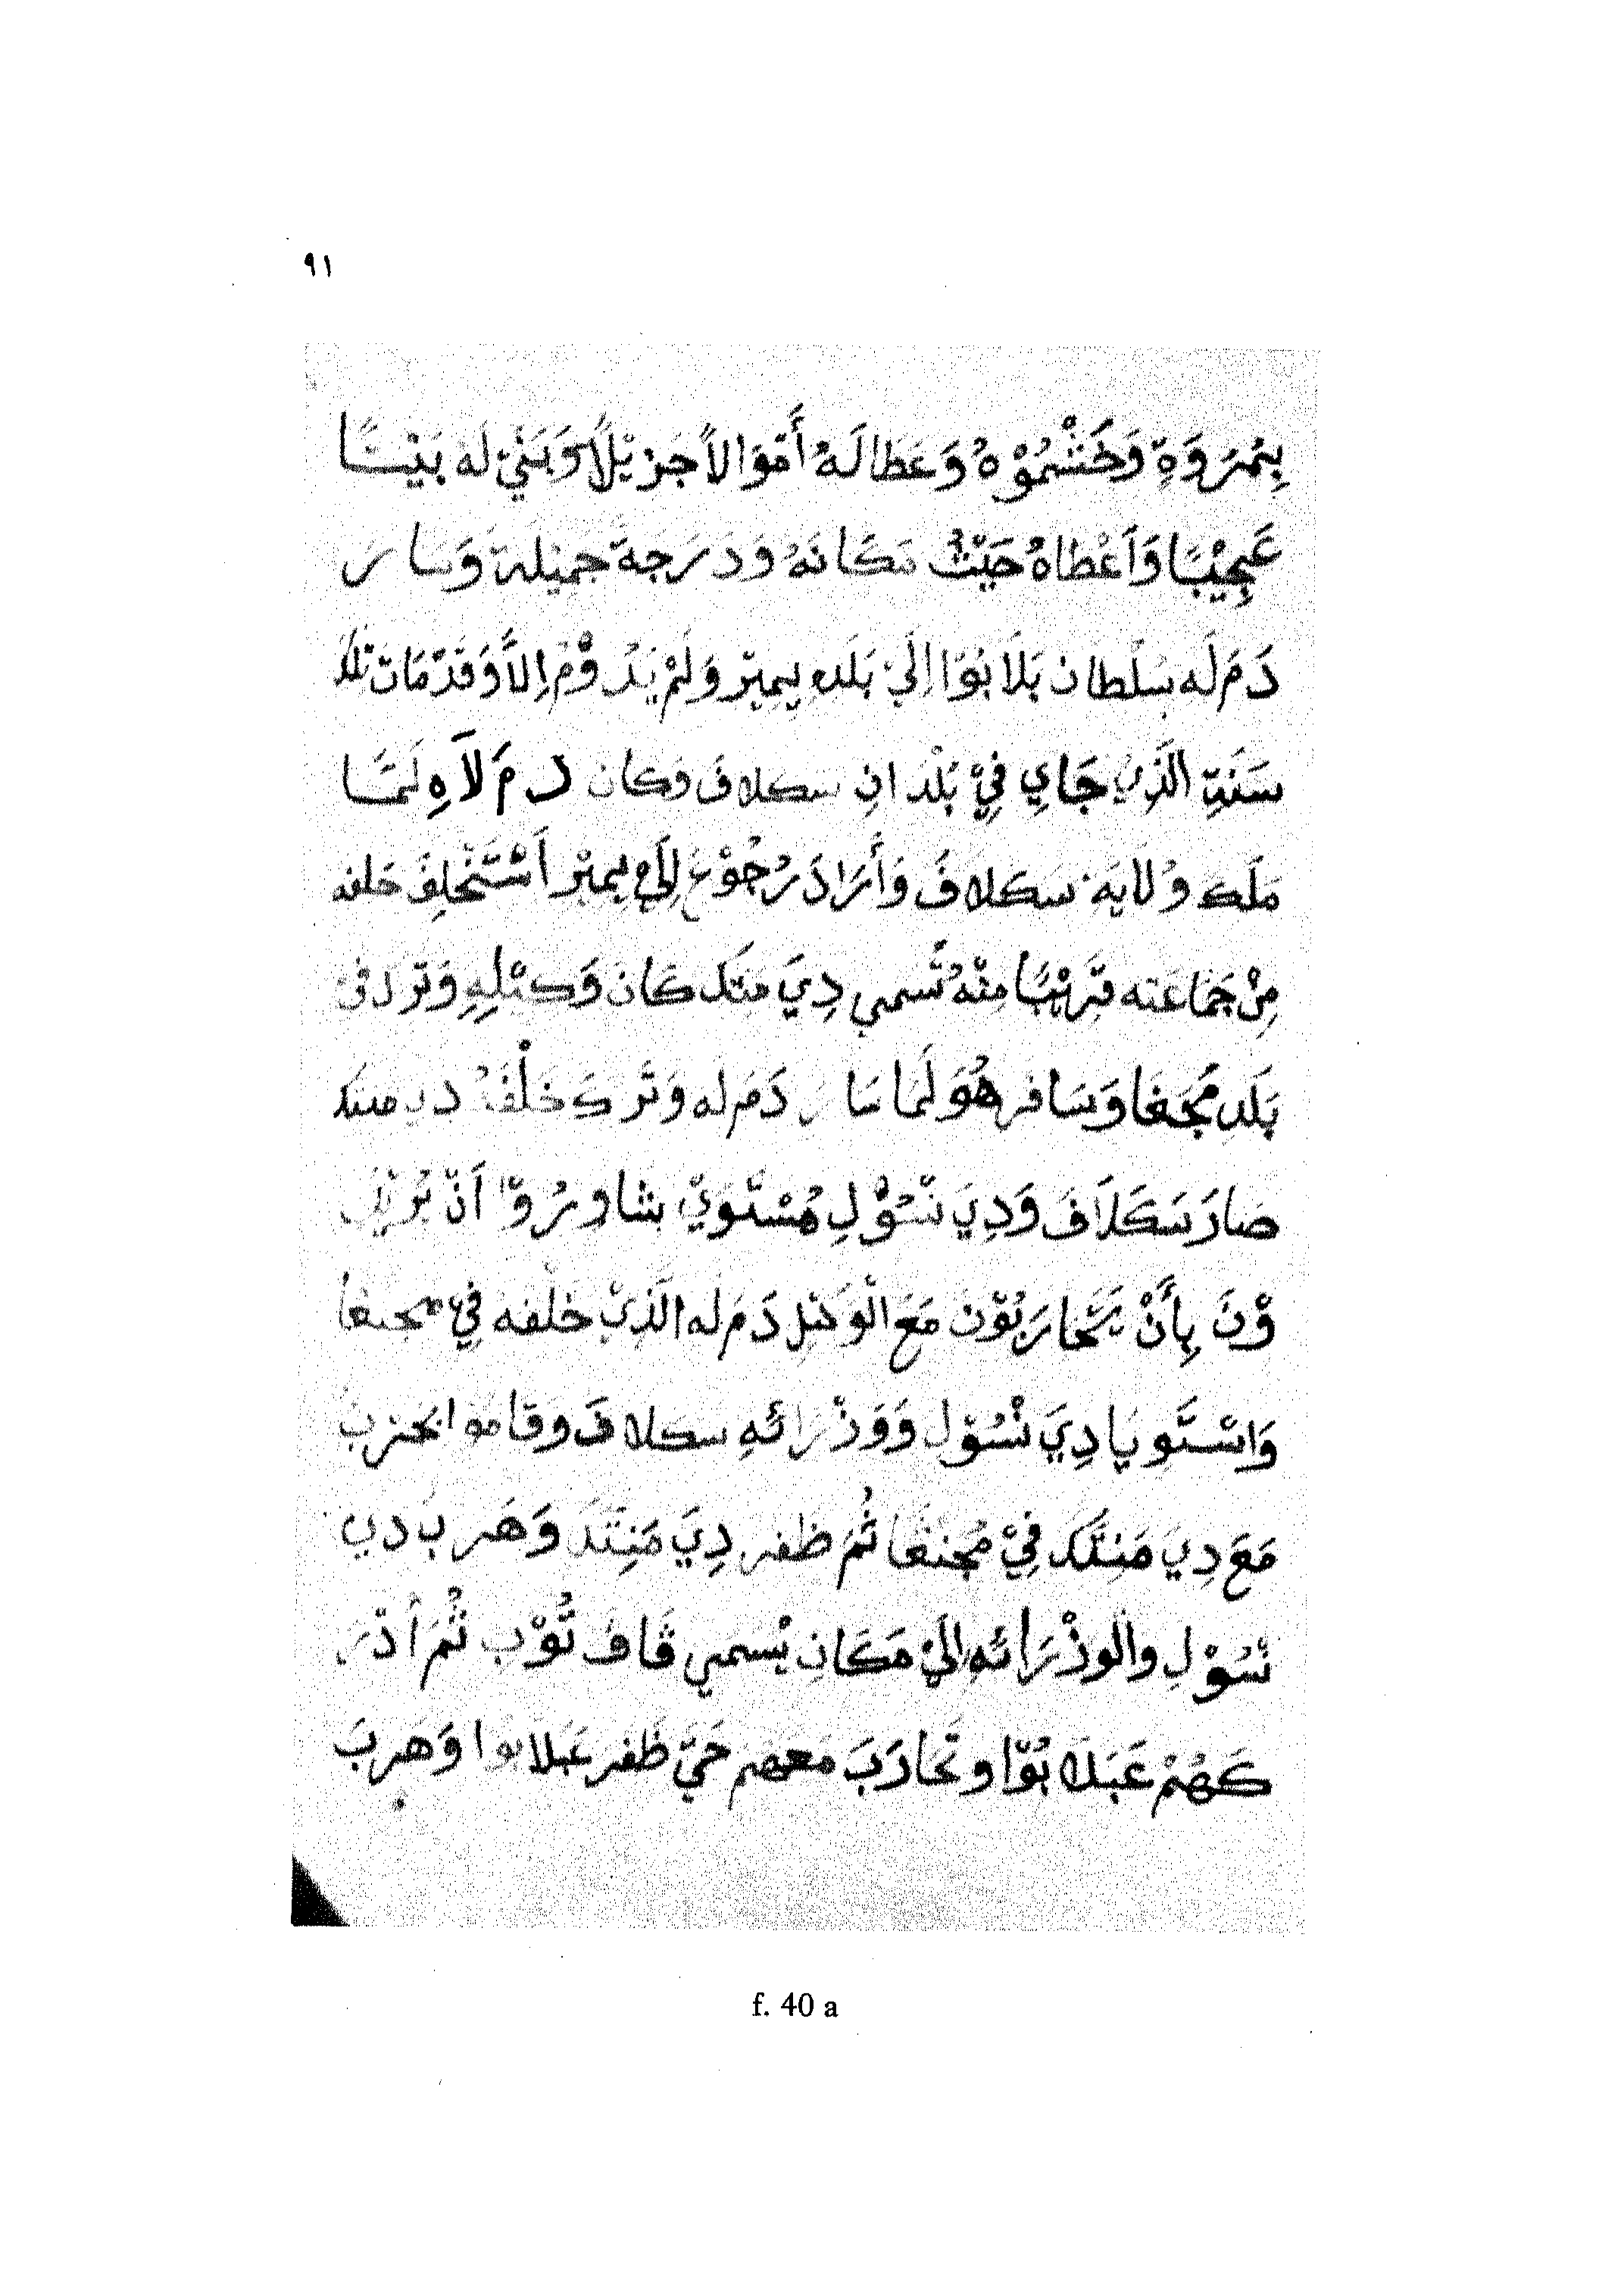 ٩١
بِمَرَوَةٍ وَخَشْمُوْهُ وَعَطَالَهُ أَمْوَالاً جَزِيْلاً وَبَنَيْ لَهُ بَيْتًا
عَجِيْبًا وَاَعْطَاهُ حَيْثُ مَكَانَهُ وَدَرَجَةً جَمِيْلَةً وَسَارَ
دَمَ لَه سُلْطان بَلَابُوَا إِلَيْ بَلَدِ يِمِيْرْ وَلَمْ يَدُوْمُ اِلاَّ وَقَدْ مَاتَ تلك
سَنَتِهِ الَّذِيْ جَاي فِيْ بُلْدَانِ سكلاڤ وَكان دَمَ لاَهِ لَمَّا
مَلَكَ وُلَايَة سَكلاڤَ وَأَرَادَ رُجُوْعَ اِلَيْ يِمِيْرْ اَسْتَخْلِفَ خلفه
مِنْ جَمَاعَته قَرِيْبًا مِنْهُ تُسَمي دِيَ مَنتك كَانَ وَكِيْلِهِ وَتر ك في
بَلَدِ مُجَنغا وَسَافر هُوَ لَمَا سَارَ دَمَ له وَتَرَكَ خَلْفَهُ دي منتك
صَارَ سَكَلَاڤَ وَدِيَ نْسُوْلِ مُسْتَوِيْ بشاورُوْا اَنْ يُرِيْد
وْنَ بِأَنْ يَتَحَارَبُوْنَ مَعَ الْوَكِيْل دَمَ له الَّذِيْ خَلْفه فِيْ مجنغا
وَاسْتَوِيا دِيَ نْسُوْل وَوَزْرَائهِ سكلاڤَ وقاموا بحزب
مَعَ دِيَ مَنِتَك فِيْ مُجَنْغَا ثُمَ ظفر دِيَ مَنِتَكَ وَهَربَ دي
نْسُوْلِ والوزْرَائهِ اِلَيْ مَكَانِ يْسمي ڤَافَ تُوْب ثُمَ أَدْرَ
كَهُمْ عَبَلَابُوّا وتَحَارَبَ معهم حَيَّ ظَفر عَبلابوا وَهَرِبَ
f. 40 a